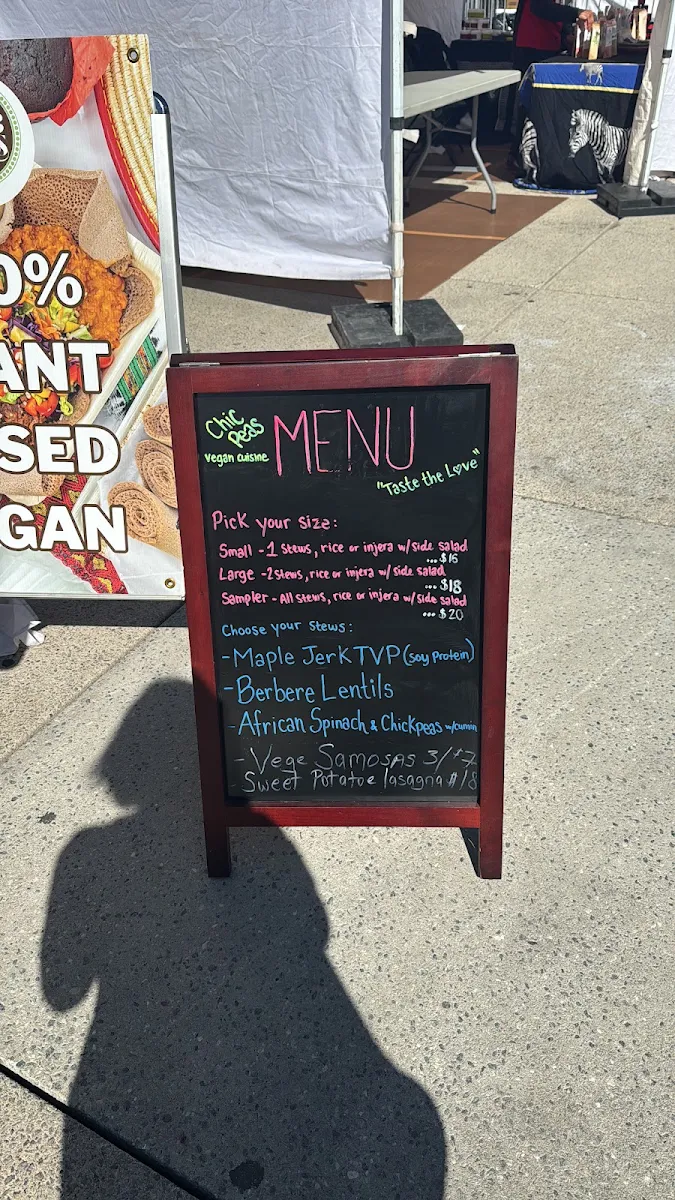 0%
ANT
SED
GAN
Chic
Peas
vegan cuisine
MENU
"Taste the L♡ve"
Pick your size:
Small - 1 stews, rice or injera w/ side salad
... $16
Large - 2 stews, rice or injera w/ side salad
... $18
Sampler - All stews, rice or injera w/ side salad
... $20
Choose your stews:
- Maple Jerk TVP (soy protein)
- Berbere Lentils
- African Spinach & Chickpeas w/cumin
- Vege Samosas 3/$7
- Sweet Potatoe lasagna $18